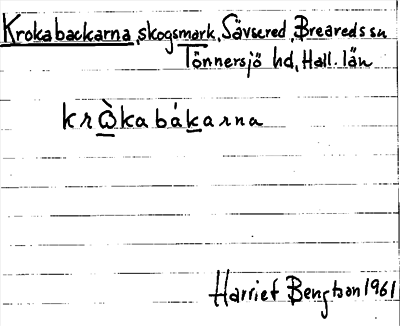 Krokabackarna, skogsmark, Sävsered, Breareds sn
Tönnersjö hd, Hall. län
krὼkabákarna
Harriet Bengtson 1961